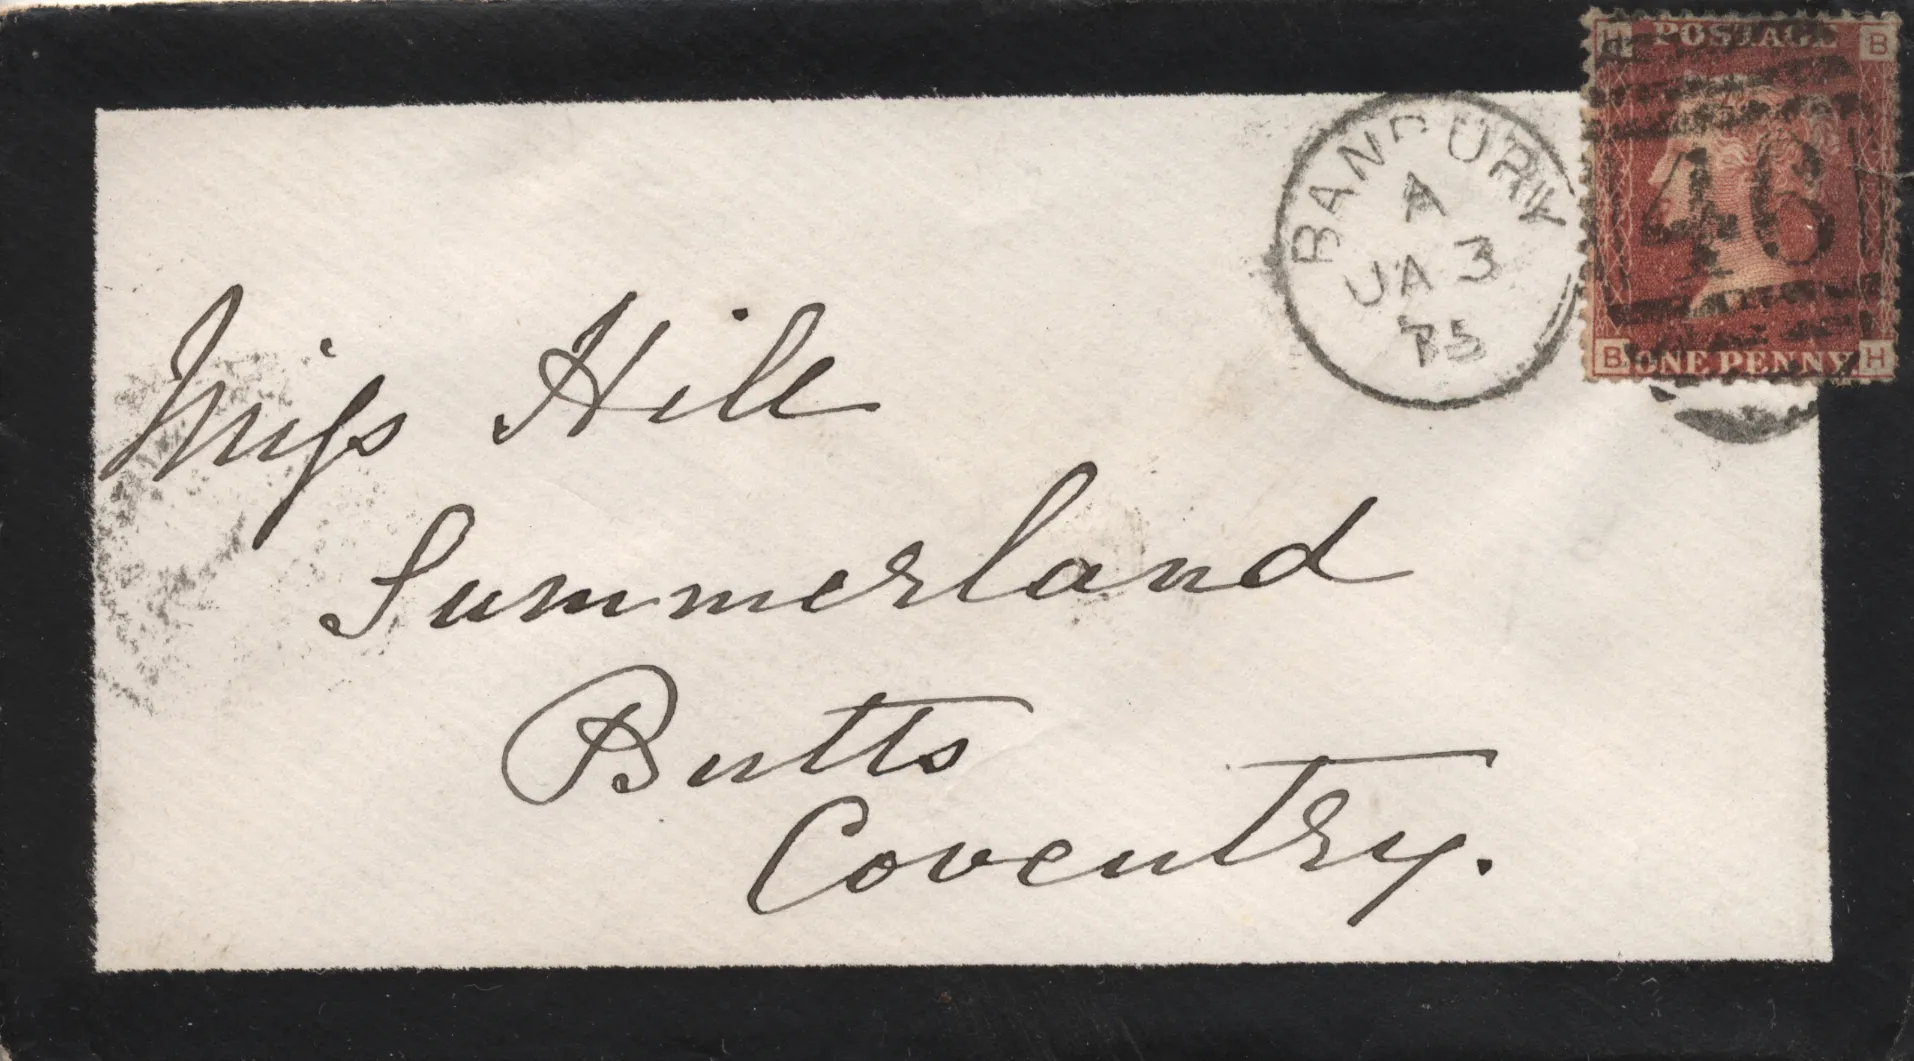 H POSTAGE B
BANBURY
A
JA 3
75
46
B ONE PENNY H
Miss Hill
Summerland
Butts
Coventry.